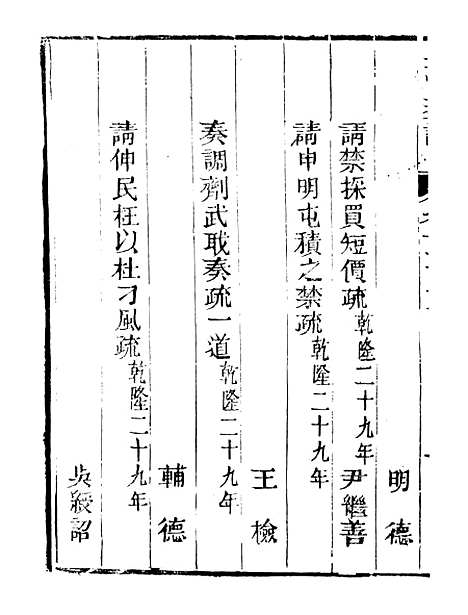 明德
請禁採買短價疏乾隆二十九年 尹繼善
請申明屯積之禁疏乾隆二十九年
王檢
奏調劑武職奏疏一道乾隆二十九年
輔德
請伸民枉以杜刁風疏乾隆二十九年
吳綬詔